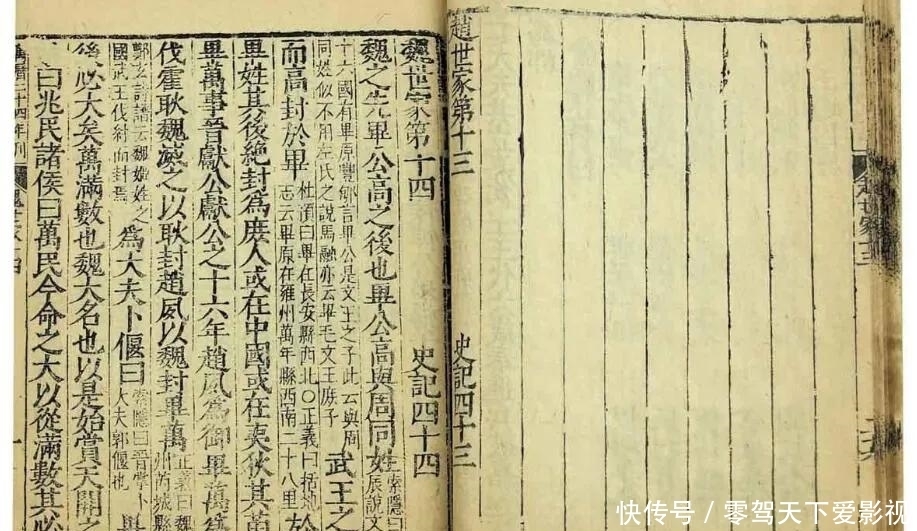 趙世家第十三 史記四十三
魏世家第十四 史記四十四
魏之先畢公高之後也畢公高與周同姓
索隱曰
辰說文
十六國有畢原豐郇言畢公是文王之子此云與周
同姓似不用左氏之說馬融亦云畢毛文王庶子
武王之
而高封於畢
杜預曰畢在長安縣西北○正義曰括地
志云畢原在雍州萬年縣西南二十八里
於
畢姓其後絕封為庶人或在中國或在夷狄其苗
畢萬事晉獻公獻公之十六年趙夙為御畢萬
伐霍耿魏滅之以耿封趙夙以魏封畢萬
正義曰魏
州芮城縣
鄭玄詩譜云魏姬姓之
國武王伐紂而封焉
為大夫卜偃曰
索隱曰晉掌卜
大夫郭偃也
後必大矣萬滿數也魏大名也以是始賞天開之
曰兆民諸侯曰萬民今命之大以從滿數其必
萬曆二十四年刊
快传号/零驾天下爱影视